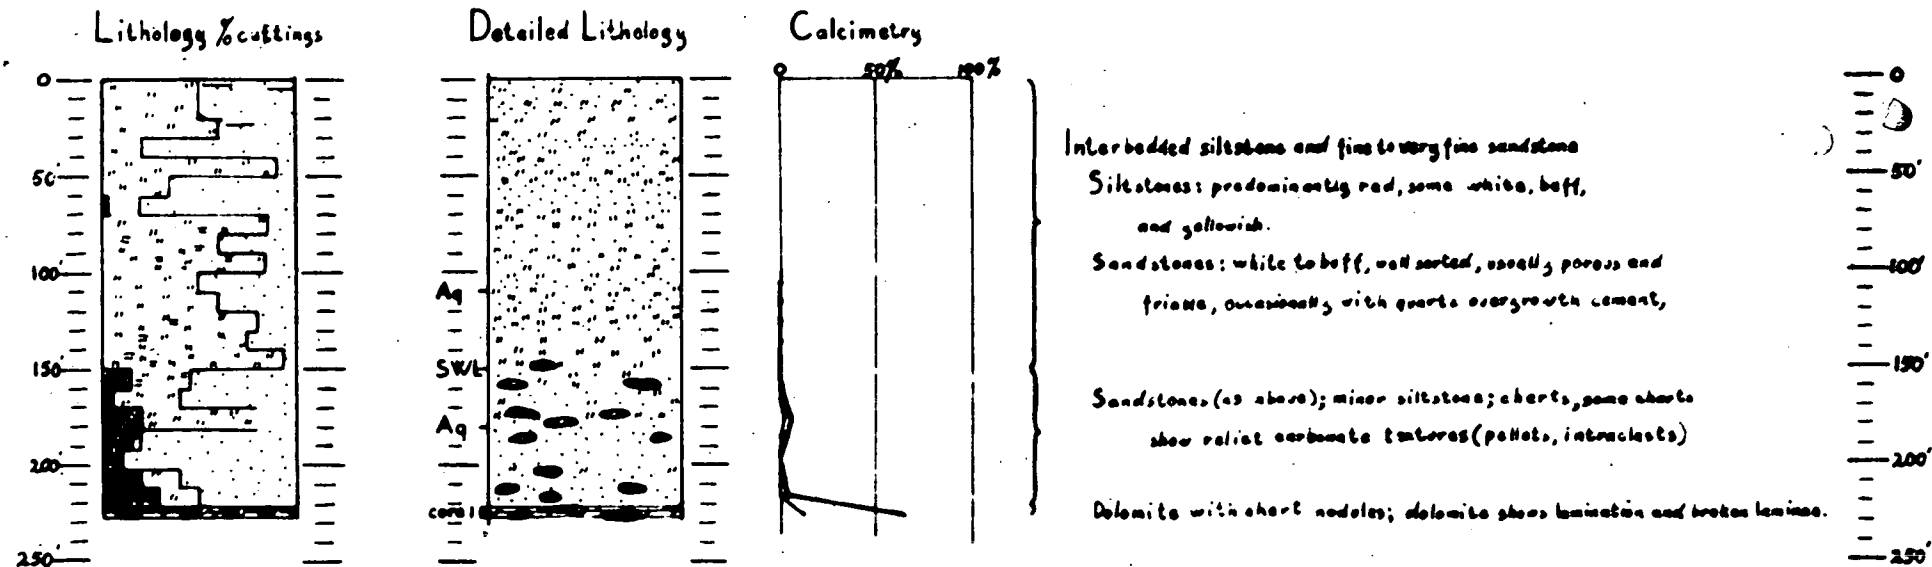 Lithology % cuttings
Detailed Lithology
Calcimetry
0
50'
100'
150'
200'
250'
Aq
SWL
Aq
core 1
0 50% 100%
Interbedded siltstone and fine to very fine sandstone
Siltstones: predominantly red, some white, buff,
and yellowish.
Sandstones: white to buff, well sorted, usually porous and
friable, occasionally with quartz overgrowth cement,
Sandstones (as above); minor siltstone; cherts, some cherts
show relict carbonate textures (pellets, intraclasts)
Dolomite with chert nodules; dolomite shows lamination and broken laminae.
0
50'
100'
150'
200'
250'